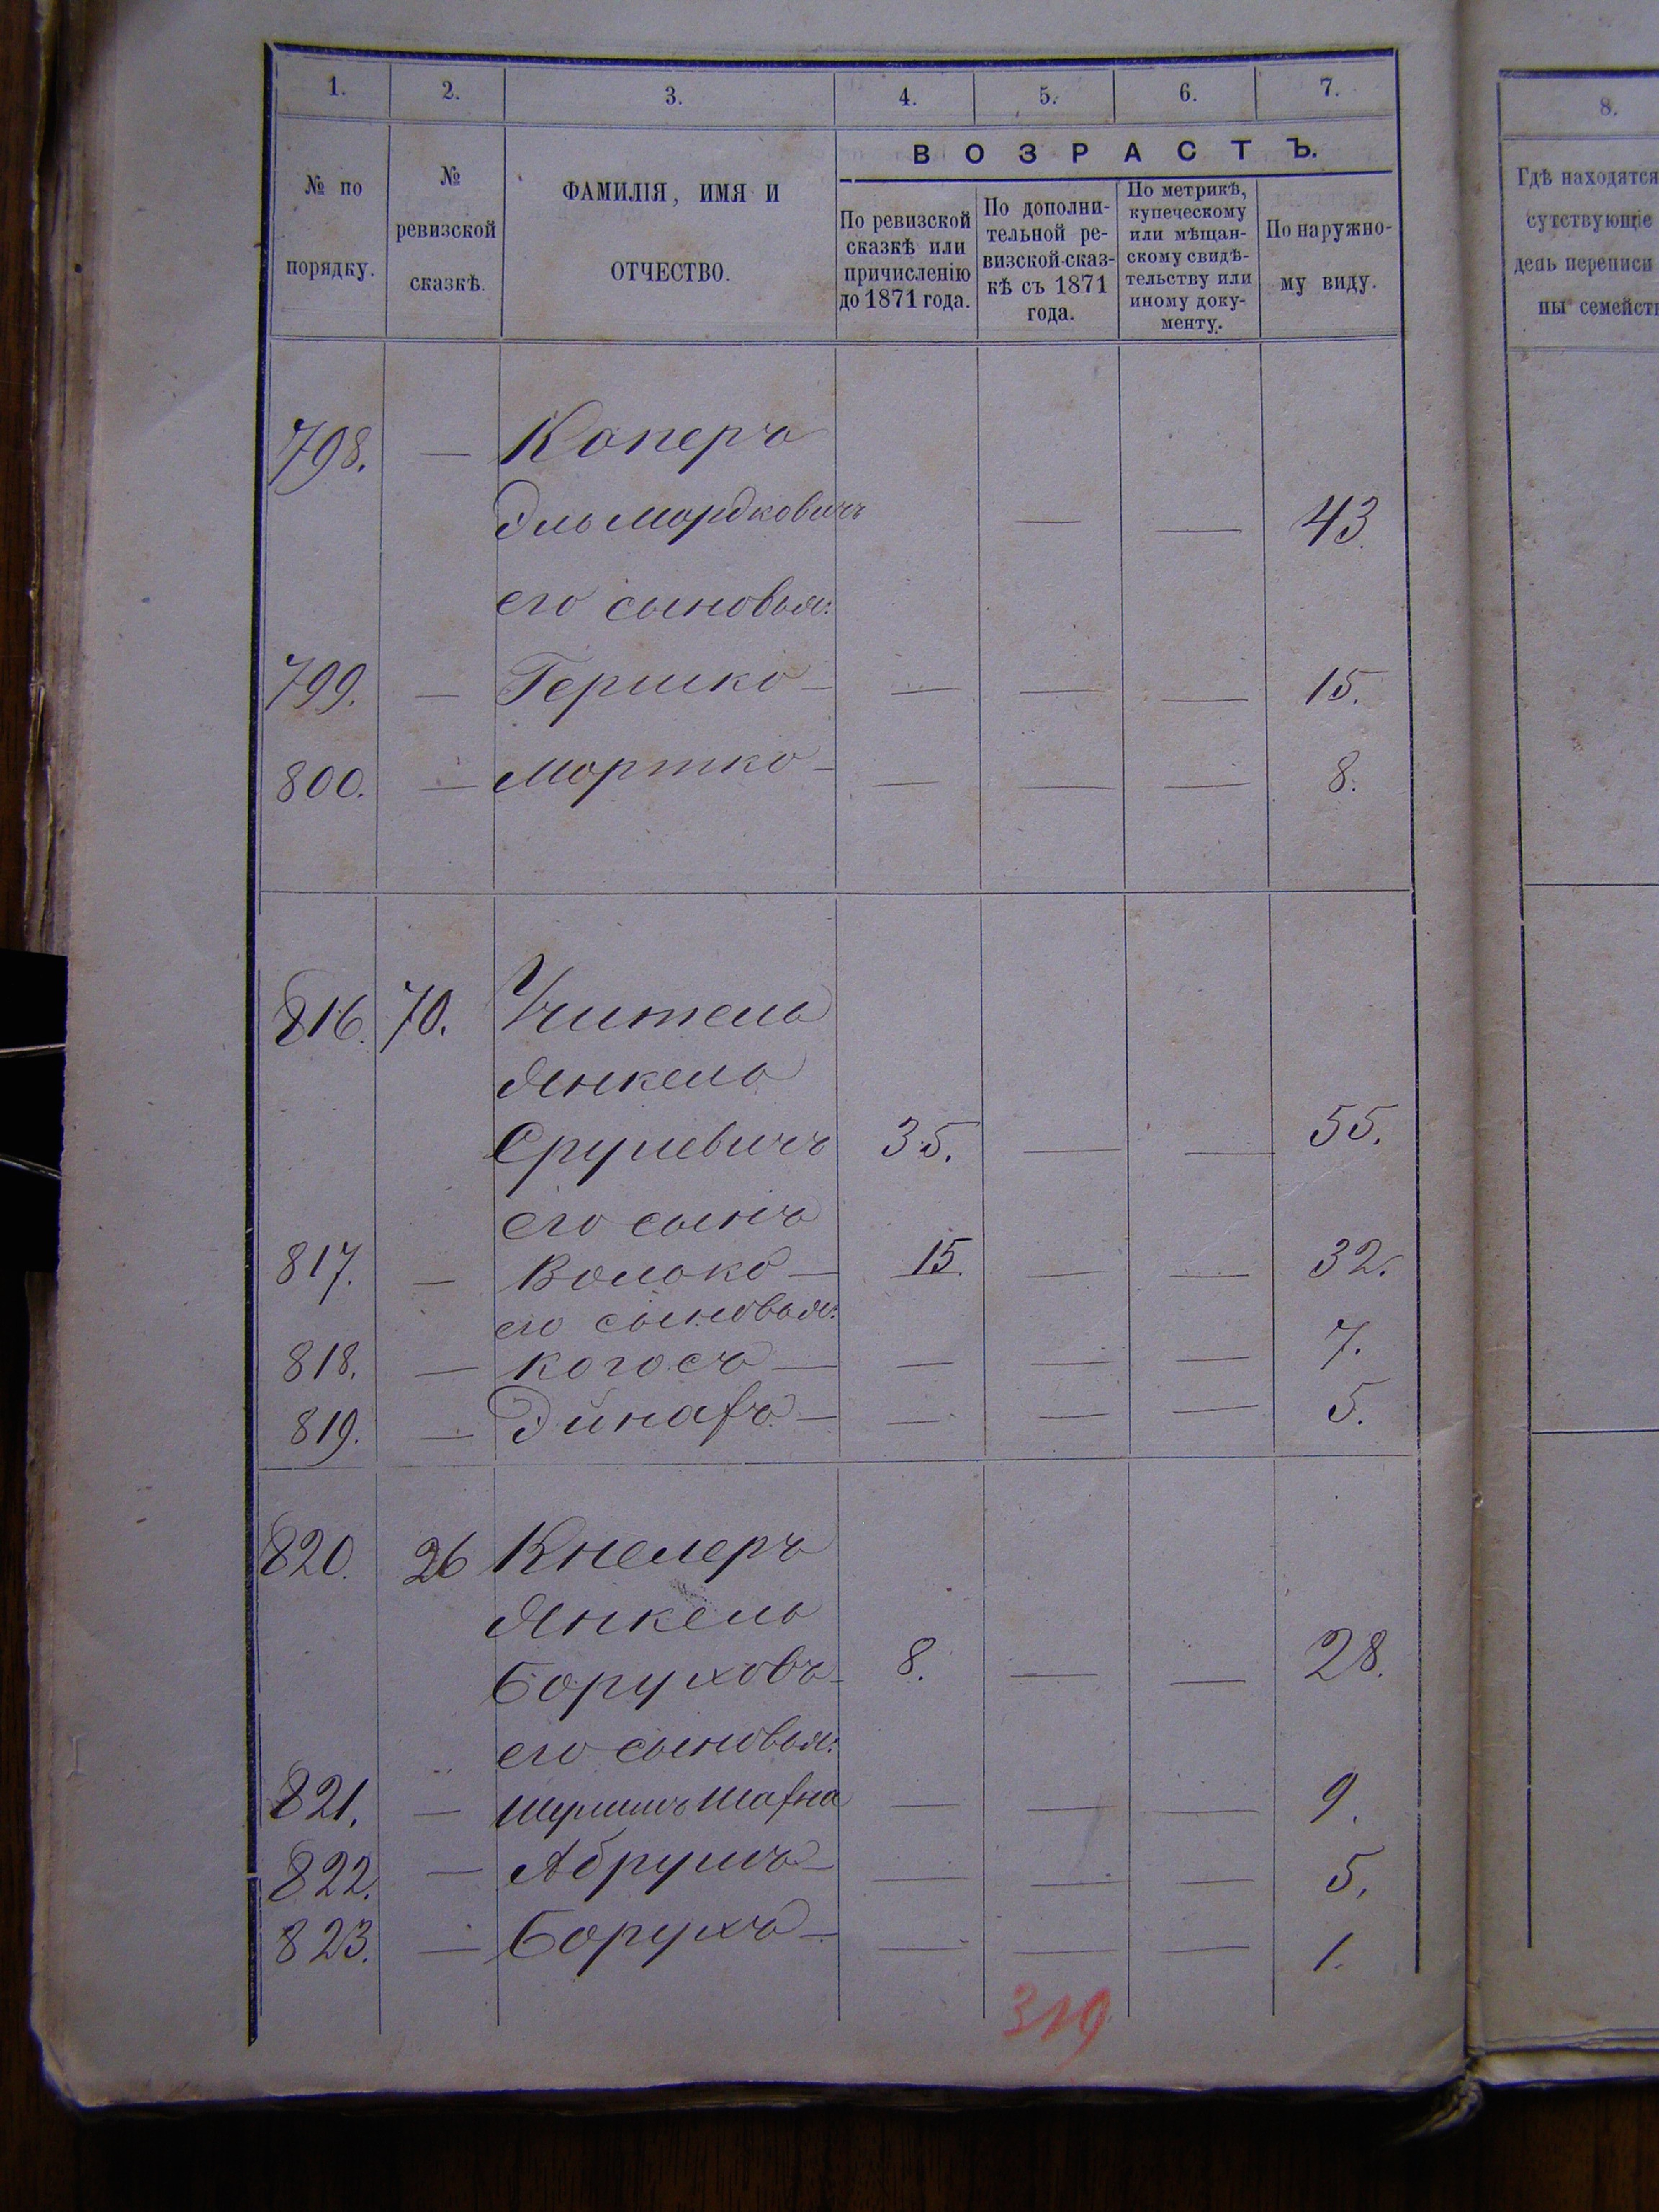 1. 2. 3. 4. 5. 6. 7.
№ по порядку.
№ ревизской сказкѣ.
ФАМИЛІЯ, ИМЯ И ОТЧЕСТВО.
ВОЗРАСТЪ.
По ревизской сказкѣ или причисленію до 1871 года.
По дополни-
тельной ре-
визской сказ-
кѣ съ 1871
года.
По метрикѣ,
купеческому
или мѣщан-
скому свидѣ-
тельству или
иному доку-
менту.
По наружно-
му виду.
798. — Каперъ
Эль Мордковичъ — — 43
его сыновья:
799. — Гершко — — — — 15.
800. — Мортко — — — — 8.
816. 70. Учитель
Янкель
Срулевичъ 35. — — 55.
его сынъ
817. — Волько — 15. — — 32.
его сыновья:
818. — Когосъ — — — — 7.
819. — Эйнафъ — — — — 5.
820. 26 Кнелеръ
Янкель
Боруховъ 8. — — 28.
его сыновья:
821. — Шулимъ Шафна — — — 9.
822. — Абрумъ — — — — 5.
823. — Борухъ — — — — 1.
319
8.
Гдѣ находятся
сутствующіе
день переписи